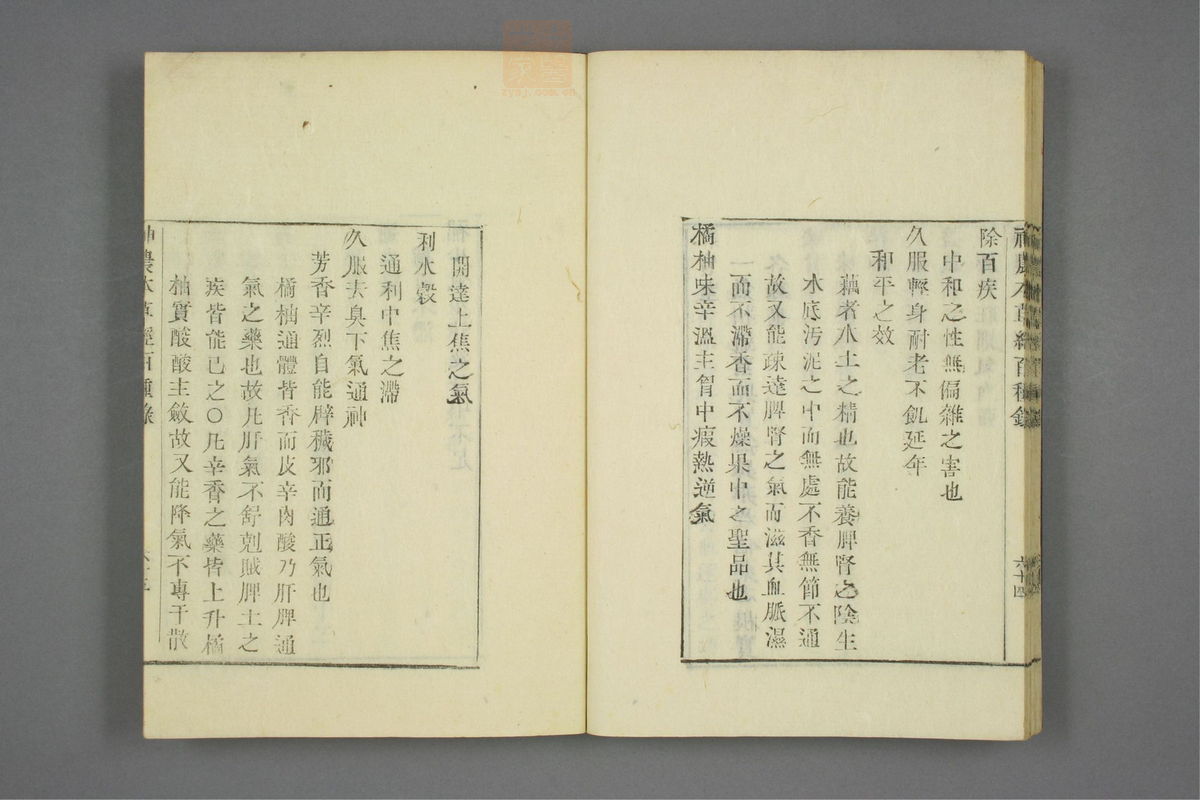 神農本草經百種錄
六十四
除百疾
中和之性無偏雜之害也
久服輕身耐老不飢延年
和平之效
藕者水土之精也故能養脾腎之陰生
水底汚泥之中而無處不香無節不通
故又能疎達脾腎之氣而滋其血脈濕
而不滯香而不燥果中之聖品也
橘柚味辛溫主胷中瘕熱逆氣
開達上焦之氣
利水穀
通利中焦之滯
久服去臭下氣通神
芳香辛烈自能辟穢邪而通正氣也
橘柚通體皆香而皮辛肉酸乃肝脾通
氣之藥也故凡肝氣不舒剋賊脾土之
疾皆能已之○凡辛香之藥皆上升橘
柚實酸酸主斂故又能降氣不專于散
神農本草經百種錄